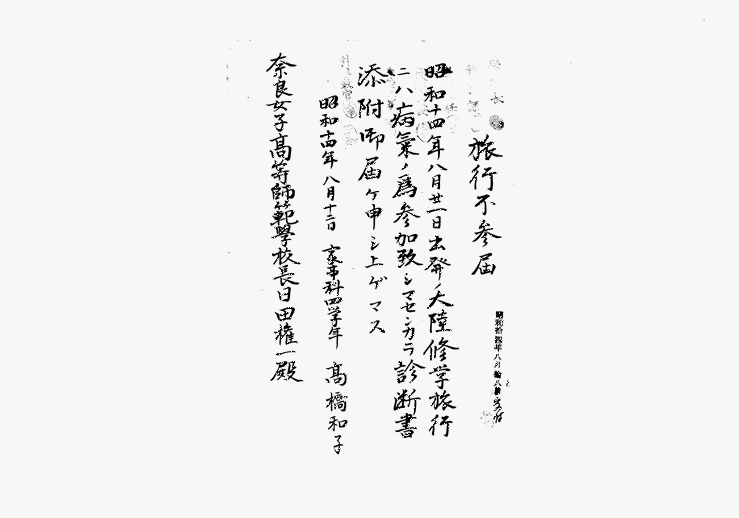 旅行不参届
昭和十四年八月廿一日出発ノ大陸修学旅行
ニハ病氣ノ爲参加致シマセンカラ診断書
添附御届ケ申シ上ゲマス
昭和十四年八月十二日 家事科四学年 髙橋和子
奈良女子高等師範學校長日田権一殿
昭和拾四年八月拾八日